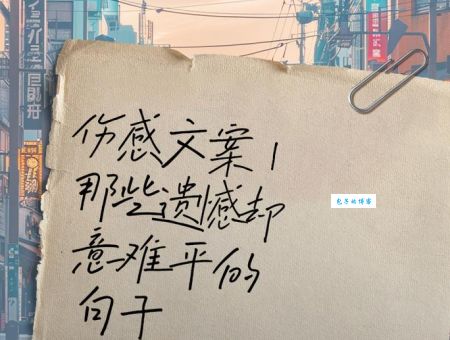 伤感文案|
那些遗憾却
意难平的
句子
包子的博客